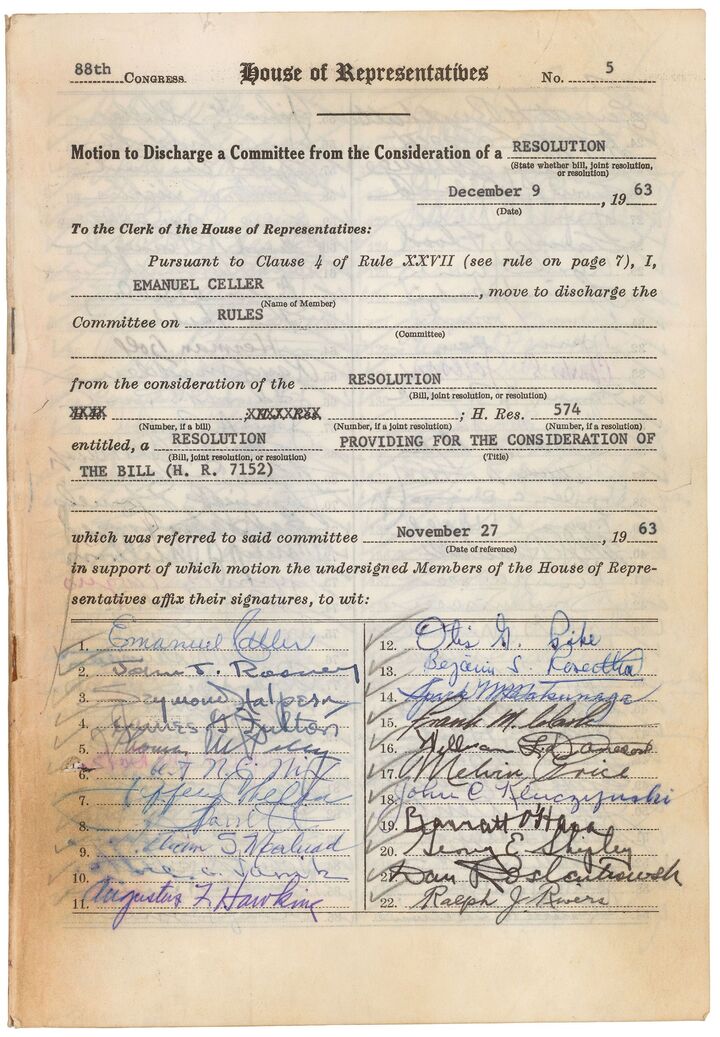 88th CONGRESS. House of Representatives No. 5
Motion to Discharge a Committee from the Consideration of a RESOLUTION
(State whether bill, joint resolution,
or resolution)
December 9, 1963
(Date)
To the Clerk of the House of Representatives:
Pursuant to Clause 4 of Rule XXVII (see rule on page 7), I,
EMANUEL CELLER, move to discharge the
(Name of Member)
Committee on RULES
(Committee)
from the consideration of the RESOLUTION
(Bill, joint resolution, or resolution)
; H. Res. 574
(Number, if a bill) (Number, if a joint resolution) (Number, if a resolution)
entitled, a RESOLUTION PROVIDING FOR THE CONSIDERATION OF
(Bill, joint resolution, or resolution) (Title)
THE BILL (H. R. 7152)
which was referred to said committee November 27, 1963
(Date of reference)
in support of which motion the undersigned Members of the House of Repre-
sentatives affix their signatures, to wit:
1. Emanuel Celler
2. John J. Rooney
3. Seymour Halpern
4. James G Fulton
5.
6.
7.
8.
9. William S Moorhead
10.
11. Augustus F Hawkins
12. Otis G. Pike
13. Benjamin S. Rosenthal
14. Spark M Matsunaga
15. Frank M. Clark
16. William
17. Melvin Price
18. John C Kluczynski
19. Barratt O'Hara
20. George E. Shipley
21. Dan Rostenkowski
22. Ralph J. Rivers